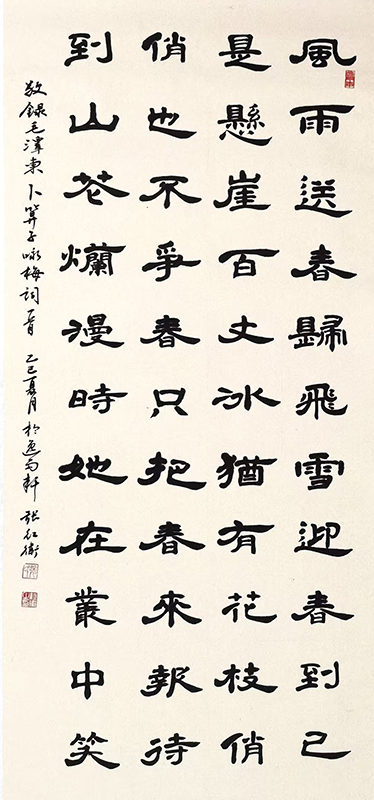 風雨送春歸飛雪迎春到已
是懸崖百丈冰猶有花枝俏
俏也不爭春只把春來報待
到山花爛漫時她在叢中笑
敬錄毛澤東卜算子咏梅詞一首 乙巳夏月於軒 張紅衛